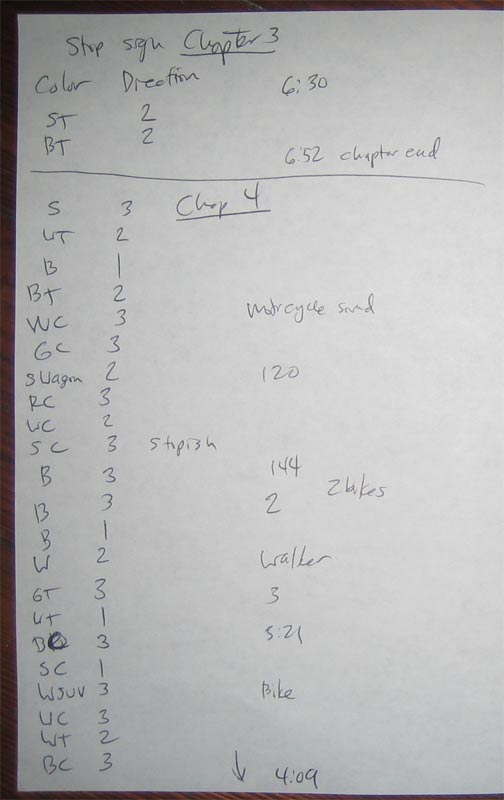 Stop sign Chapter 3
Color Direction 6:30
ST 2
BT 2
6:52 chapter end
S 3 Chap 4
WT 2
B 1
BT 2
WC 3 Motrcycle sound
GC 3
S Wagon 2 120
RC 3
WC 2
SC 3 Stopish
B 3 144
B 3 2 2 bikes
B 1
W 2 Walker
GT 3 3
WT 1
B 3 5:21
SC 1
WSUV 3 Bike
WC 3
WT 2
BC 3 ↓ 4:09